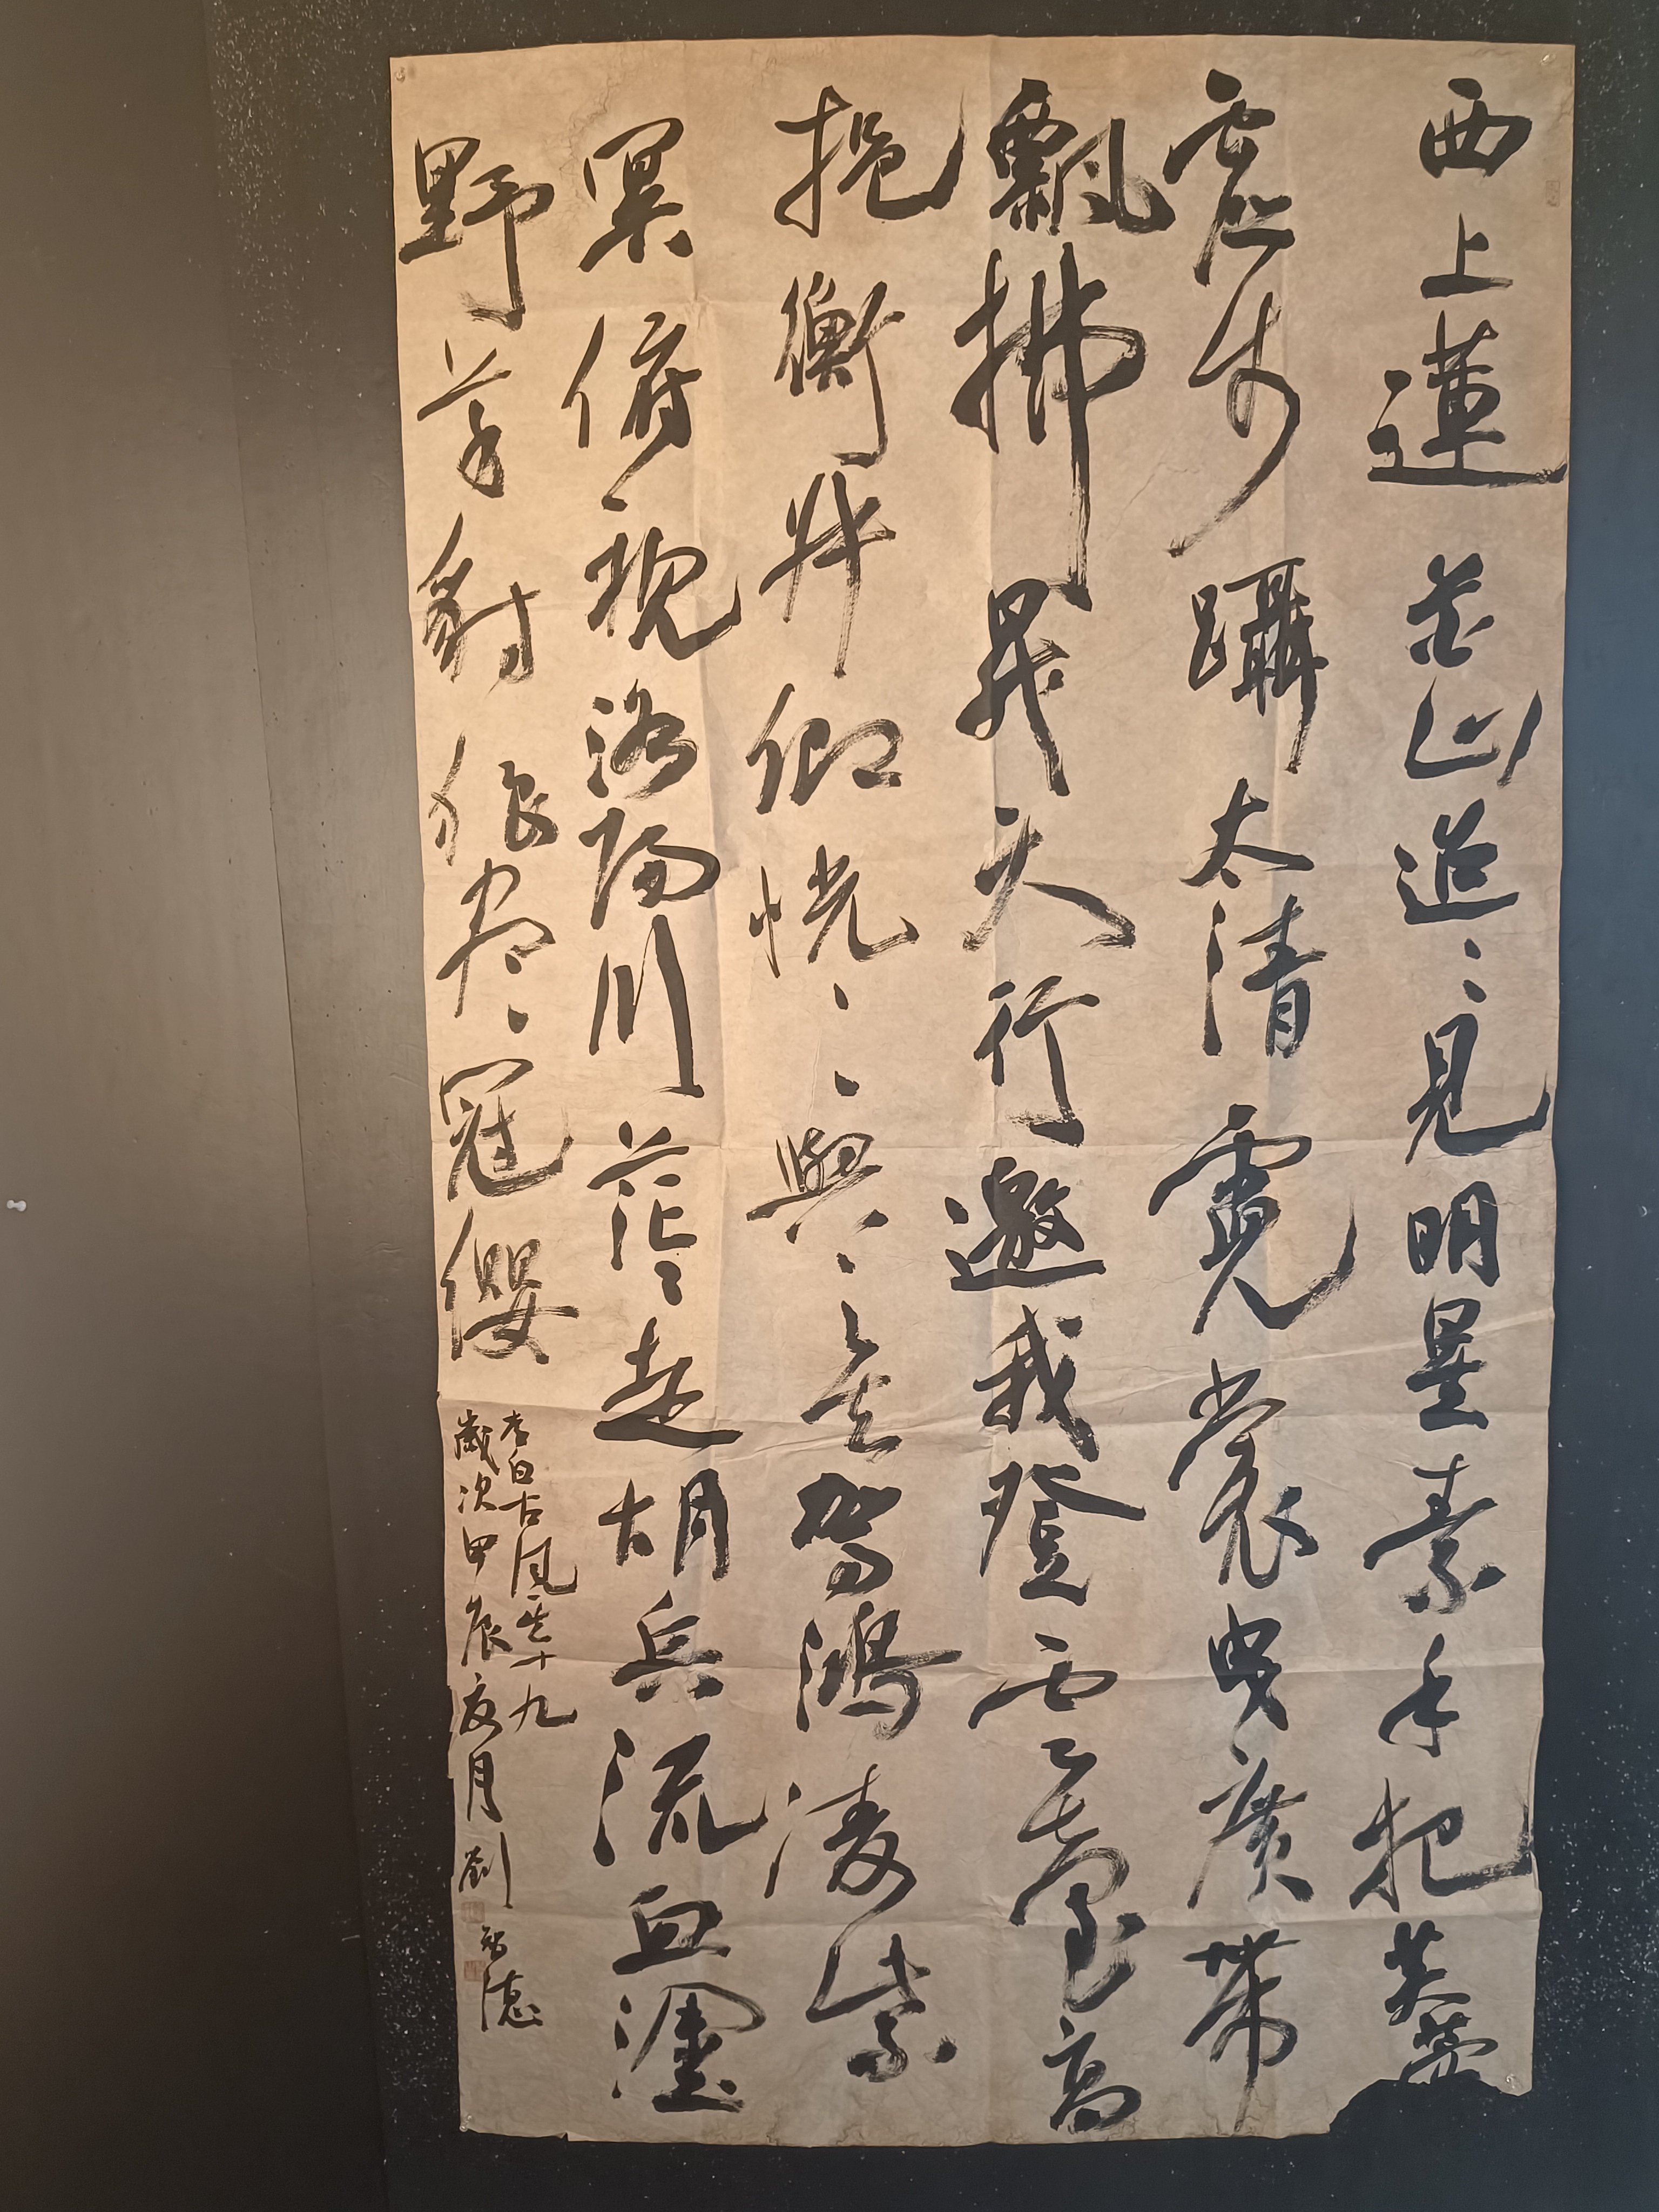 西上蓮花山迢〻見明星素手把芙蓉
虛步躡太清霓裳曳廣帶
飄拂昇天行邀我登雲臺高
揖衛叔卿恍〻與之去駕鴻凌紫
冥俯視洛陽川茫〻走胡兵流血塗
野草豺狼盡冠纓
李白古風其十九
歲次甲辰夏月劉智德